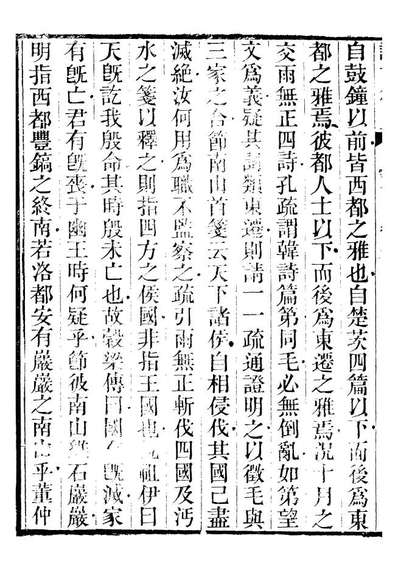 自鼓鐘以前皆西都之雅也自楚茨四篇以下而後爲東
都之雅焉彼都人士以下而後爲東遷之雅焉况十月之
交雨無正四詩孔疏謂韓詩篇第同毛必無倒亂如第望
文爲義疑其詩類東遷則請一一疏通證明之以徵毛與
三家之合節南山首箋云天下諸侯自相侵伐其國已盡
滅絕汝何用爲職不監察之疏引雨無正斬伐四國及沔
水之箋以釋之則指四方之侯國非指王國也祖伊曰
天既訖我殷命其時殷未亡也故穀梁傳曰國既滅家
有既亡君有既喪于幽王時何疑乎節彼南山石巖巖
明指西都豐鎬之終南若洛都安有巖巖之南山乎董仲